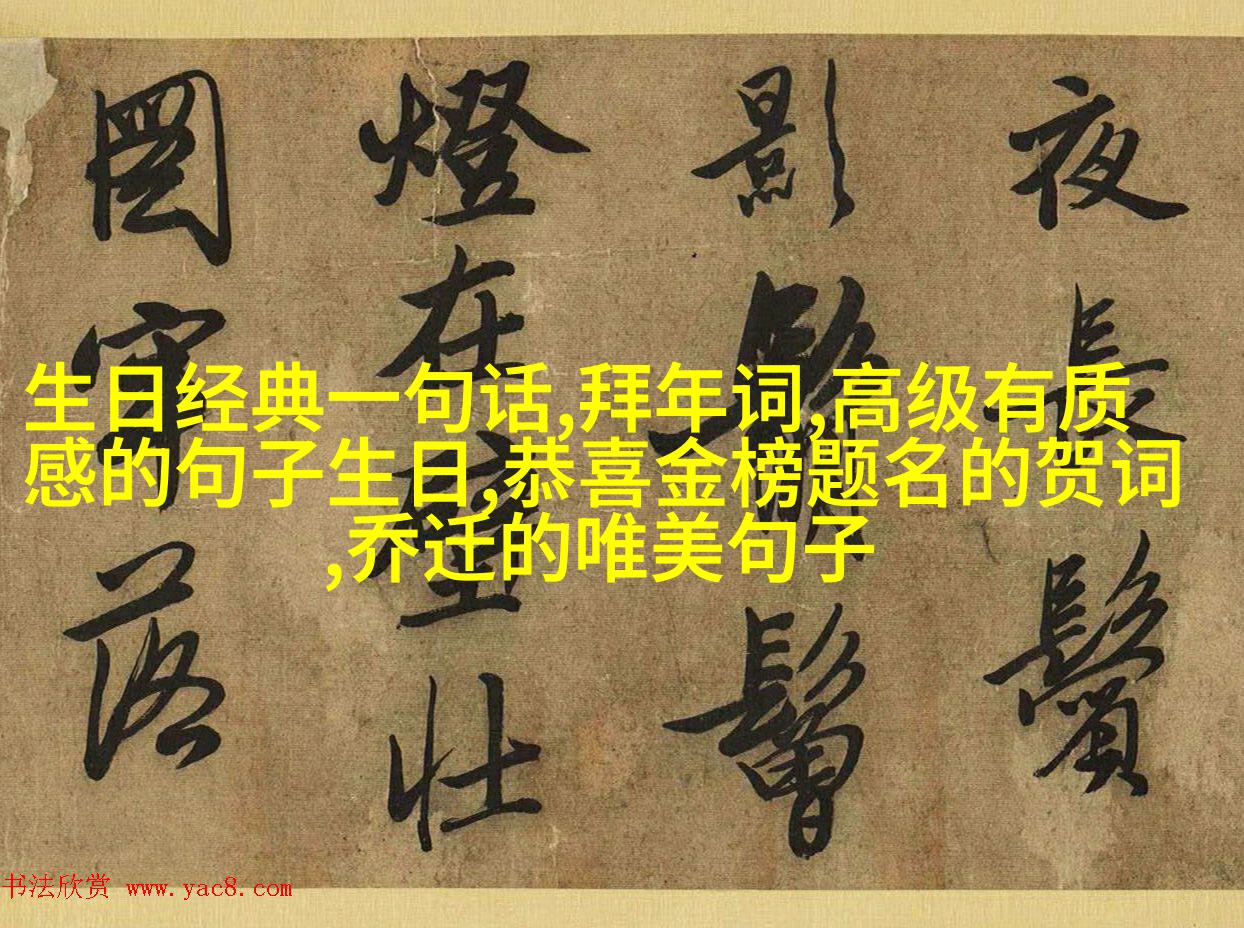 生日经典一句话,拜年词,高级有质
感的句子生日,恭喜金榜题名的贺词
,乔迁的唯美句子
夜長鬢
影鬙
燈在壁壯
圖牢落
书法欣赏 www.yac8.com